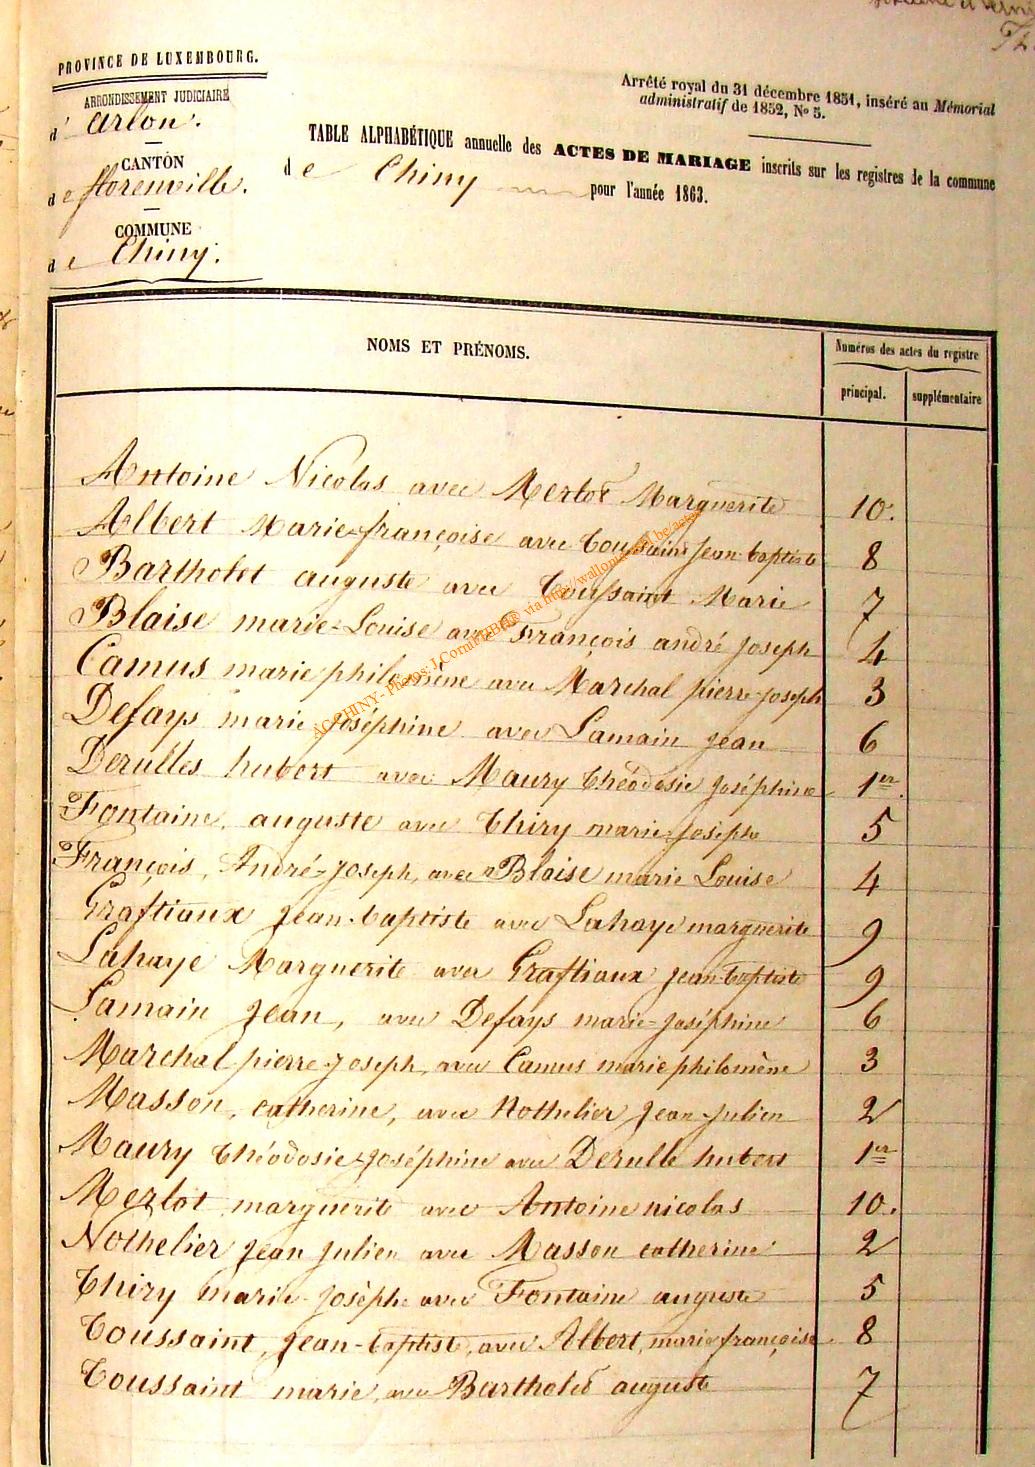 PROVINCE DE LUXEMBOURG.
ARRONDISSEMENT JUDICIAIRE
d' Arlon.
CANTON
de florenville.
COMMUNE
de Chiny.
Arrêté royal du 31 décembre 1851, inséré au Mémorial
administratif de 1852, No 5.
TABLE ALPHABÉTIQUE annuelle des ACTES DE MARIAGE inscrits sur les registres de la commune
de Chiny pour l'année 1863.
NOMS ET PRÉNOMS.
Numéros des actes du registre
principal. supplémentaire
Antoine Nicolas avec Merlot Marguerite 10.
Albert Marie-françoise avec Toussaint Jean-baptiste 8
Bartholet auguste avec Toussaint Marie 7
Blaise marie-Louise avec François andré Joseph 4
Camus marie philomène avec Marchal pierre-Joseph 3
Defays marie Joséphine avec Lamain Jean 6
Derulles hubert avec Maury Théodosie Joséphine 1er.
Fontaine, auguste avec Thiry marie-Josèphe 5
François, André-Joseph, avec Blaise marie Louise 4
Graftiaux Jean-baptiste avec Lahaye marguerite 9
Lahaye Marguerite avec Graftiaux Jean-baptiste 9
Lamain Jean, avec Defays marie-Joséphine 6
Marchal pierre-Joseph, avec Camus marie philomène 3
Masson, catherine, avec Nothelier Jean-Julien 2
Maury Théodosie-Joséphine avec Derulle hubert 1er
Merlot marguerite avec Antoine nicolas 10.
Nothelier Jean Julien avec Masson catherine 2
Thiry marie-Josèphe avec Fontaine auguste 5
Toussaint, Jean-baptiste, avec Albert, marie françoise 8
Toussaint marie, avec Bartholet auguste 7